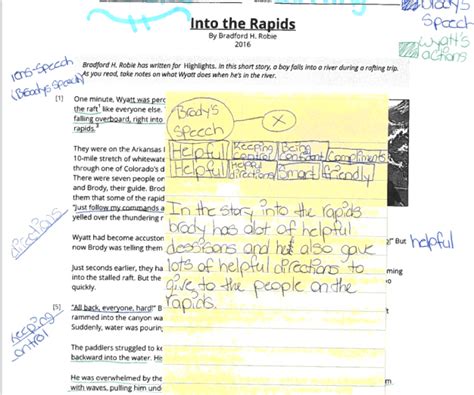 Brody's
Speech
Wyatt's
actions
Into the Rapids
By Bradford H. Robie
2016
Bradford H. Robie has written for Highlights. In this short story, a boy falls into a river during a rafting trip.
As you read, take notes on what Wyatt does when he's in the river.
(Brody's Speech)
[1] One minute, Wyatt was perc
the raft¹ like everyone else.
falling overboard, right into
rapids.²
Brody's
Speech
X
Helpful Keeping control Being confident Compliments
Helpful Helpful directions Smart friendly
They were on the Arkansas
10-mile stretch of whitewate
through one of Colorado's d
There were seven people or
and Brody, their guide. Brod
them that some of the rapid
"Just follow my commands a
yelled over the thundering r
directions
In the story into the rapids
brody has alot of helpful
dessisons and he also gave
lots of helpful directions to
give to the people on the
rapids.
Wyatt had become accustom
now Brody was telling them
But
helpful
Just seconds earlier, they ha
into the stalled raft. But the
quickly.
[5] "All back, everyone, hard!" B
rammed into the canyon wa
Suddenly, water was pouring
keeping
control
The paddlers struggled to ke
backward into the water. He
He was overwhelmed by the
with waves, pulling him und